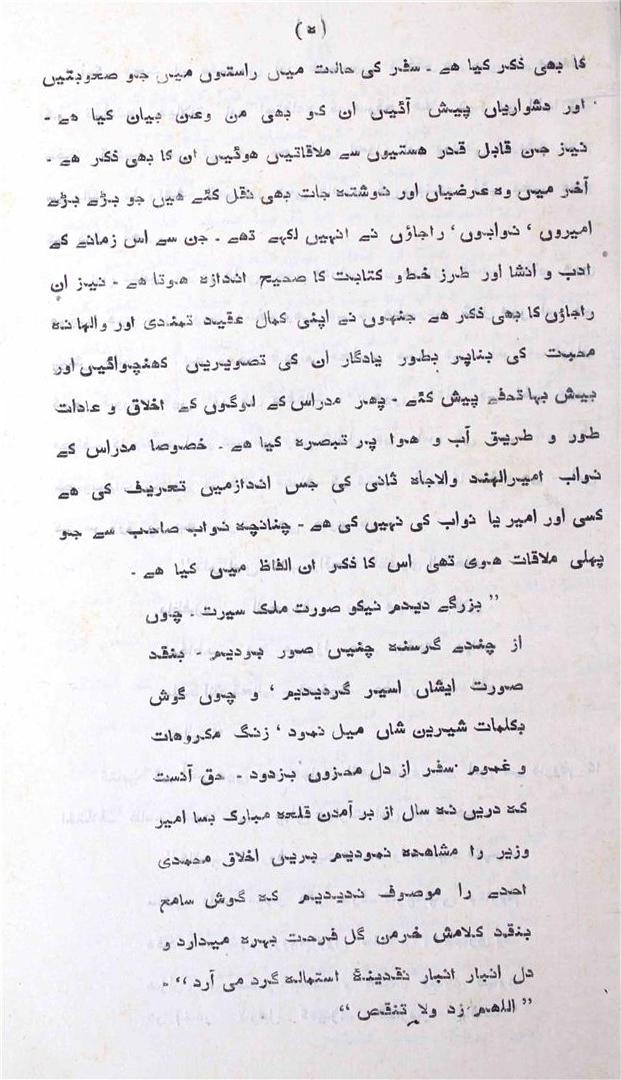 (ه)
کا بھی ذکر کیا ھے ۔ سفر کی حالت میں راستوں میں جو صعوبتیں
اور دشواریاں پیش آئیں ان کو بھی من وعن بیان کیا ھے ۔
نیز جن قابل قدر ھستیوں سے ملاقاتیں ھوئیں ان کا بھی ذکر ھے ۔
آخر میں وہ عرضیاں اور نوشتہ جات بھی نقل کئے ھیں جو بڑے بڑے
امیروں ، نوابوں ، راجاؤں نے انہیں لکھے تھے ۔ جن سے اس زمانے کے
ادب و انشا اور طرز خط و کتابت کا صحیح اندازہ ھوتا ھے ۔ نیز ان
راجاؤں کا بھی ذکر ھے جنہوں نے اپنی کمال عقید تمندی اور والہانہ
محبت کی بناپر بطور یادگار ان کی تصویریں کھنچوائیں اور
بیش بہا تحفے پیش کئے ۔ پھر مدراس کے لوگوں کے اخلاق و عادات
طور و طریق آب و ھوا پر تبصرہ کیا ھے ۔ خصوصا مدراس کے
نواب امیرالہند والاجاہ ثانی کی جس اندازمیں تعریف کی ھے
کسی اور امیر یا نواب کی نہیں کی ھے ۔ چنانچہ نواب صاحب سے جو
پہلی ملاقات ھوی تھی اس کا ذکر ان الفاظ میں کیا ھے ۔
” بزرگے دیدم نیکو صورت ملک سیرت ۔ چوں
از چندے گرسنہ چنیں صور بودیم ۔ بنقد
صورت ایشاں اسیر گردیدیم ، و چوں گوش
بکلمات شیرین شاں میل نمود ، زنگ مکروھات
و غموم سفر از دل محزوں بزدود ۔ حق آنست
کہ دریں نہ سال از بر آمدن قلعہ مبارک بسا امیر
وزیر را مشاھدہ نمودیم بریں اخلاق محمدی
احدے را موصوف ندیدیم کہ گوش سامع
بنقد کلامش خرمن گل فرحت بہرہ میدارد و
دل انبار انبار نقدینۂ استمالہ گرد می آرد “ ۔
” اللھم زد ولا تنقص “